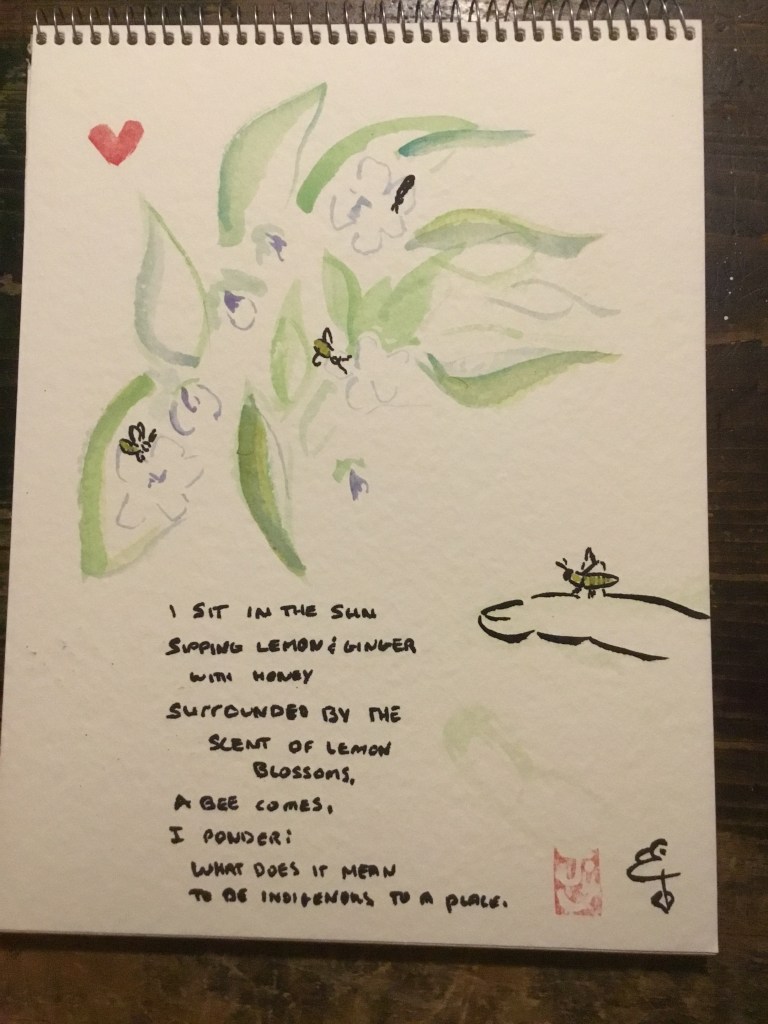 I SIT IN THE SUN
SIPPING LEMON & GINGER
WITH HONEY
SURROUNDED BY THE
SCENT OF LEMON
BLOSSOMS,
A BEE COMES,
I PONDER:
WHAT DOES IT MEAN
TO BE INDIGENOUS TO A PLACE.